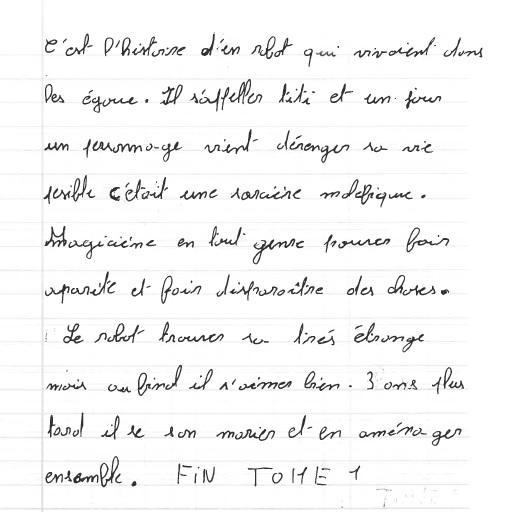 c'est l'histoire d'en robot qui vivaient dans
les égoue. Il s'affeller titi et un jour
un personnage vient déranger sa vie
pesible c'était une sorcière maléfique.
Magiciène en tout genre pouver fair
aparête et fair disparaître des choses.
Le robot trouver sa trés étrange
mais au find il s'aimer bien. 3 ans plus
tard il se son marier et en aménager
ensemble. FiN TOME 1